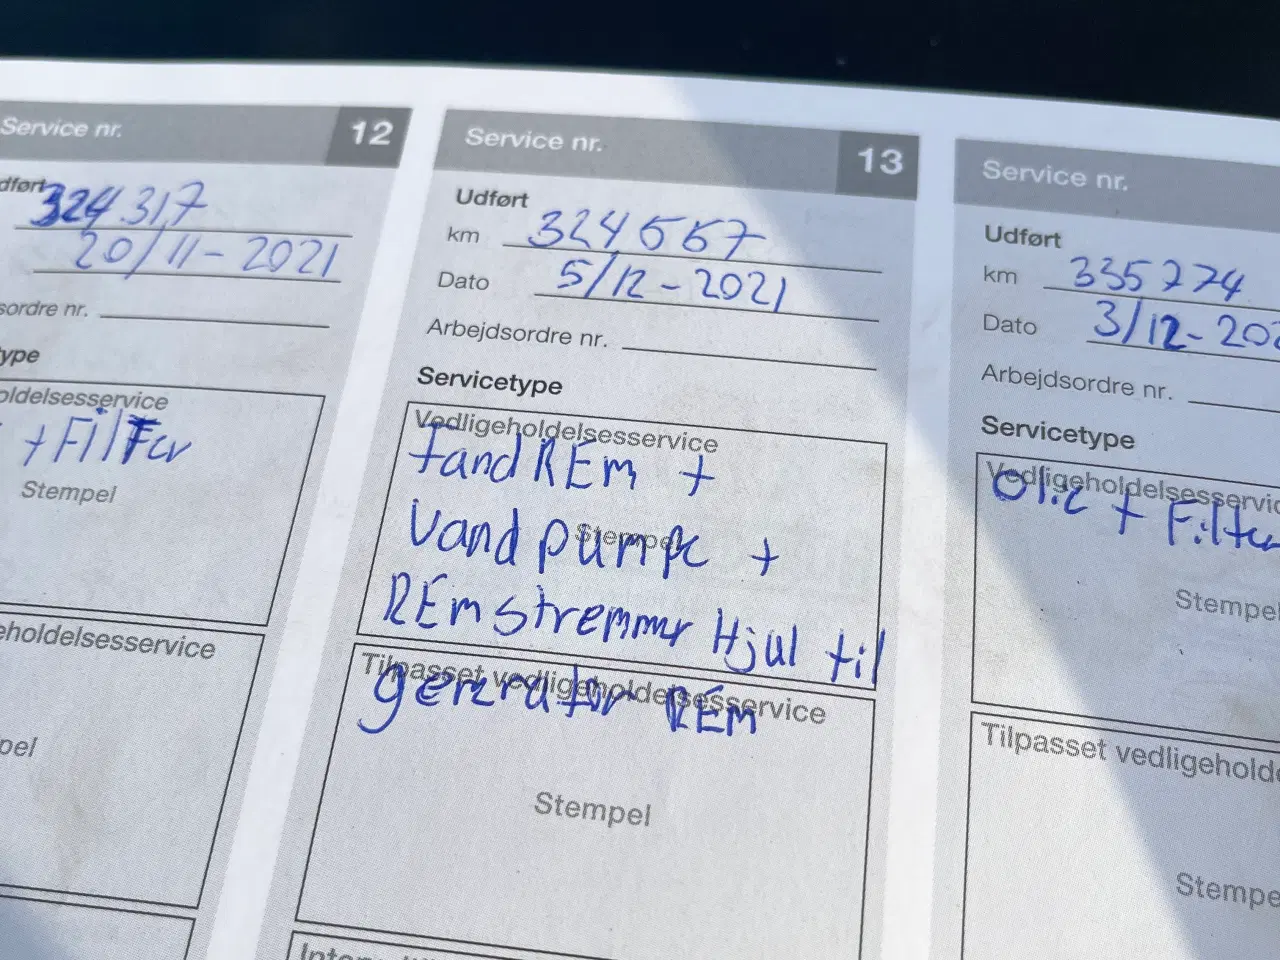 Service nr. 12
324317
20/11-2021
sordre nr.
ype
oldelsesservice
+ Filter
Stempel
eholdelsesservice
pel
Service nr. 13
Udført
km 324557
Dato 5/12-2021
Arbejdsordre nr.
Servicetype
Vedligeholdelsesservice
TandREm +
Stempel
Vandpumpe +
REmstremmer Hjul til
Tilpasset vedligeholdelsesservice
generator REm
Stempel
Service nr.
Udført
km 335274
Dato 3/12-202
Arbejdsordre nr.
Servicetype
Vedligeholdelsesservic
Olie + Filter
Stempel
Tilpasset vedligeholde
Stempe